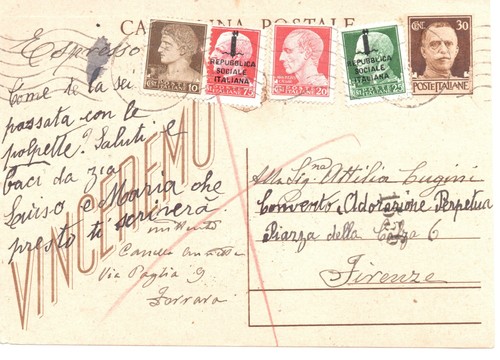 CARTOLINA POSTALE
Espresso
10
REPUBBLICA
SOCIALE
ITALIANA
20
REPUBBLICA
SOCIALE
ITALIANA
25
CENT. 30
POSTE ITALIANE
Come te la sei
passata con le
polpette? Saluti e
baci da zia
e Maria che
presto ti scriverà.
VINCEREMO
mittente
Via Paglia 9
Ferrara
Alla Sig.na Attilia Cugini
Convento Adorazione Perpetua
Piazza della Calza 6
Firenze